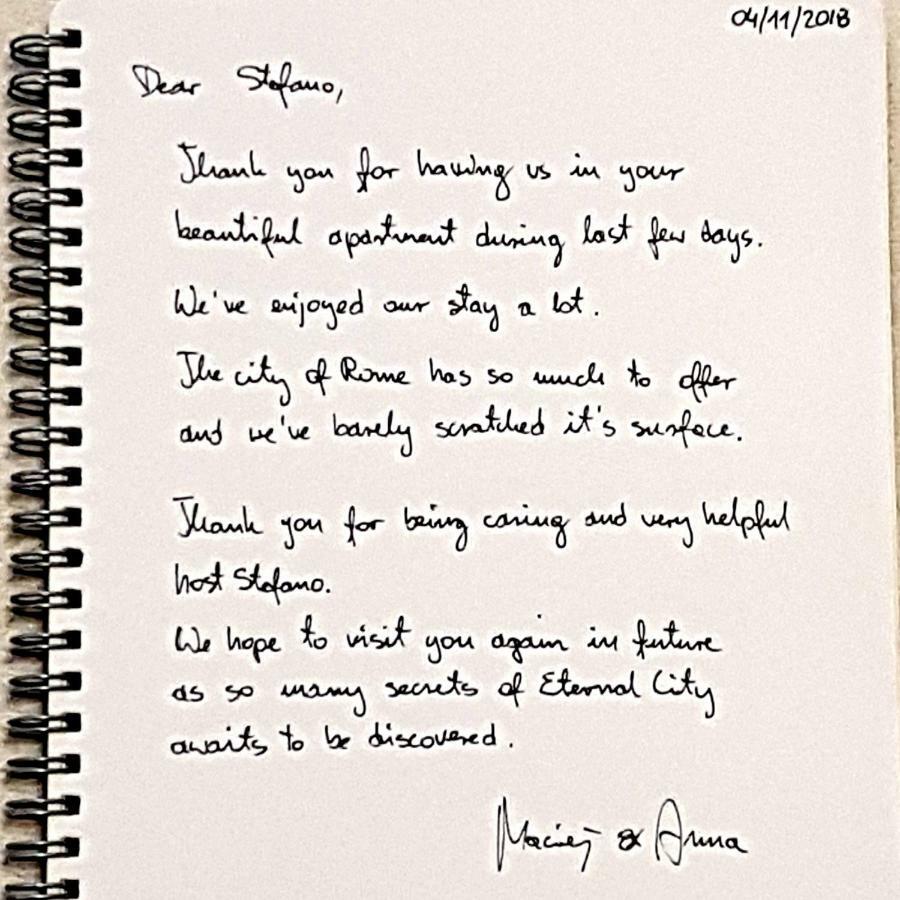 04/11/2018
Dear Stefano,
Thank you for having us in your
beautiful apartment during last few days.
We've enjoyed our stay a lot.
The city of Rome has so much to offer
and we've barely scratched it's surface.
Thank you for being caring and very helpful
host Stefano.
We hope to visit you again in future
as so many secrets of Eternal City
awaits to be discovered.
Maciej & Anna